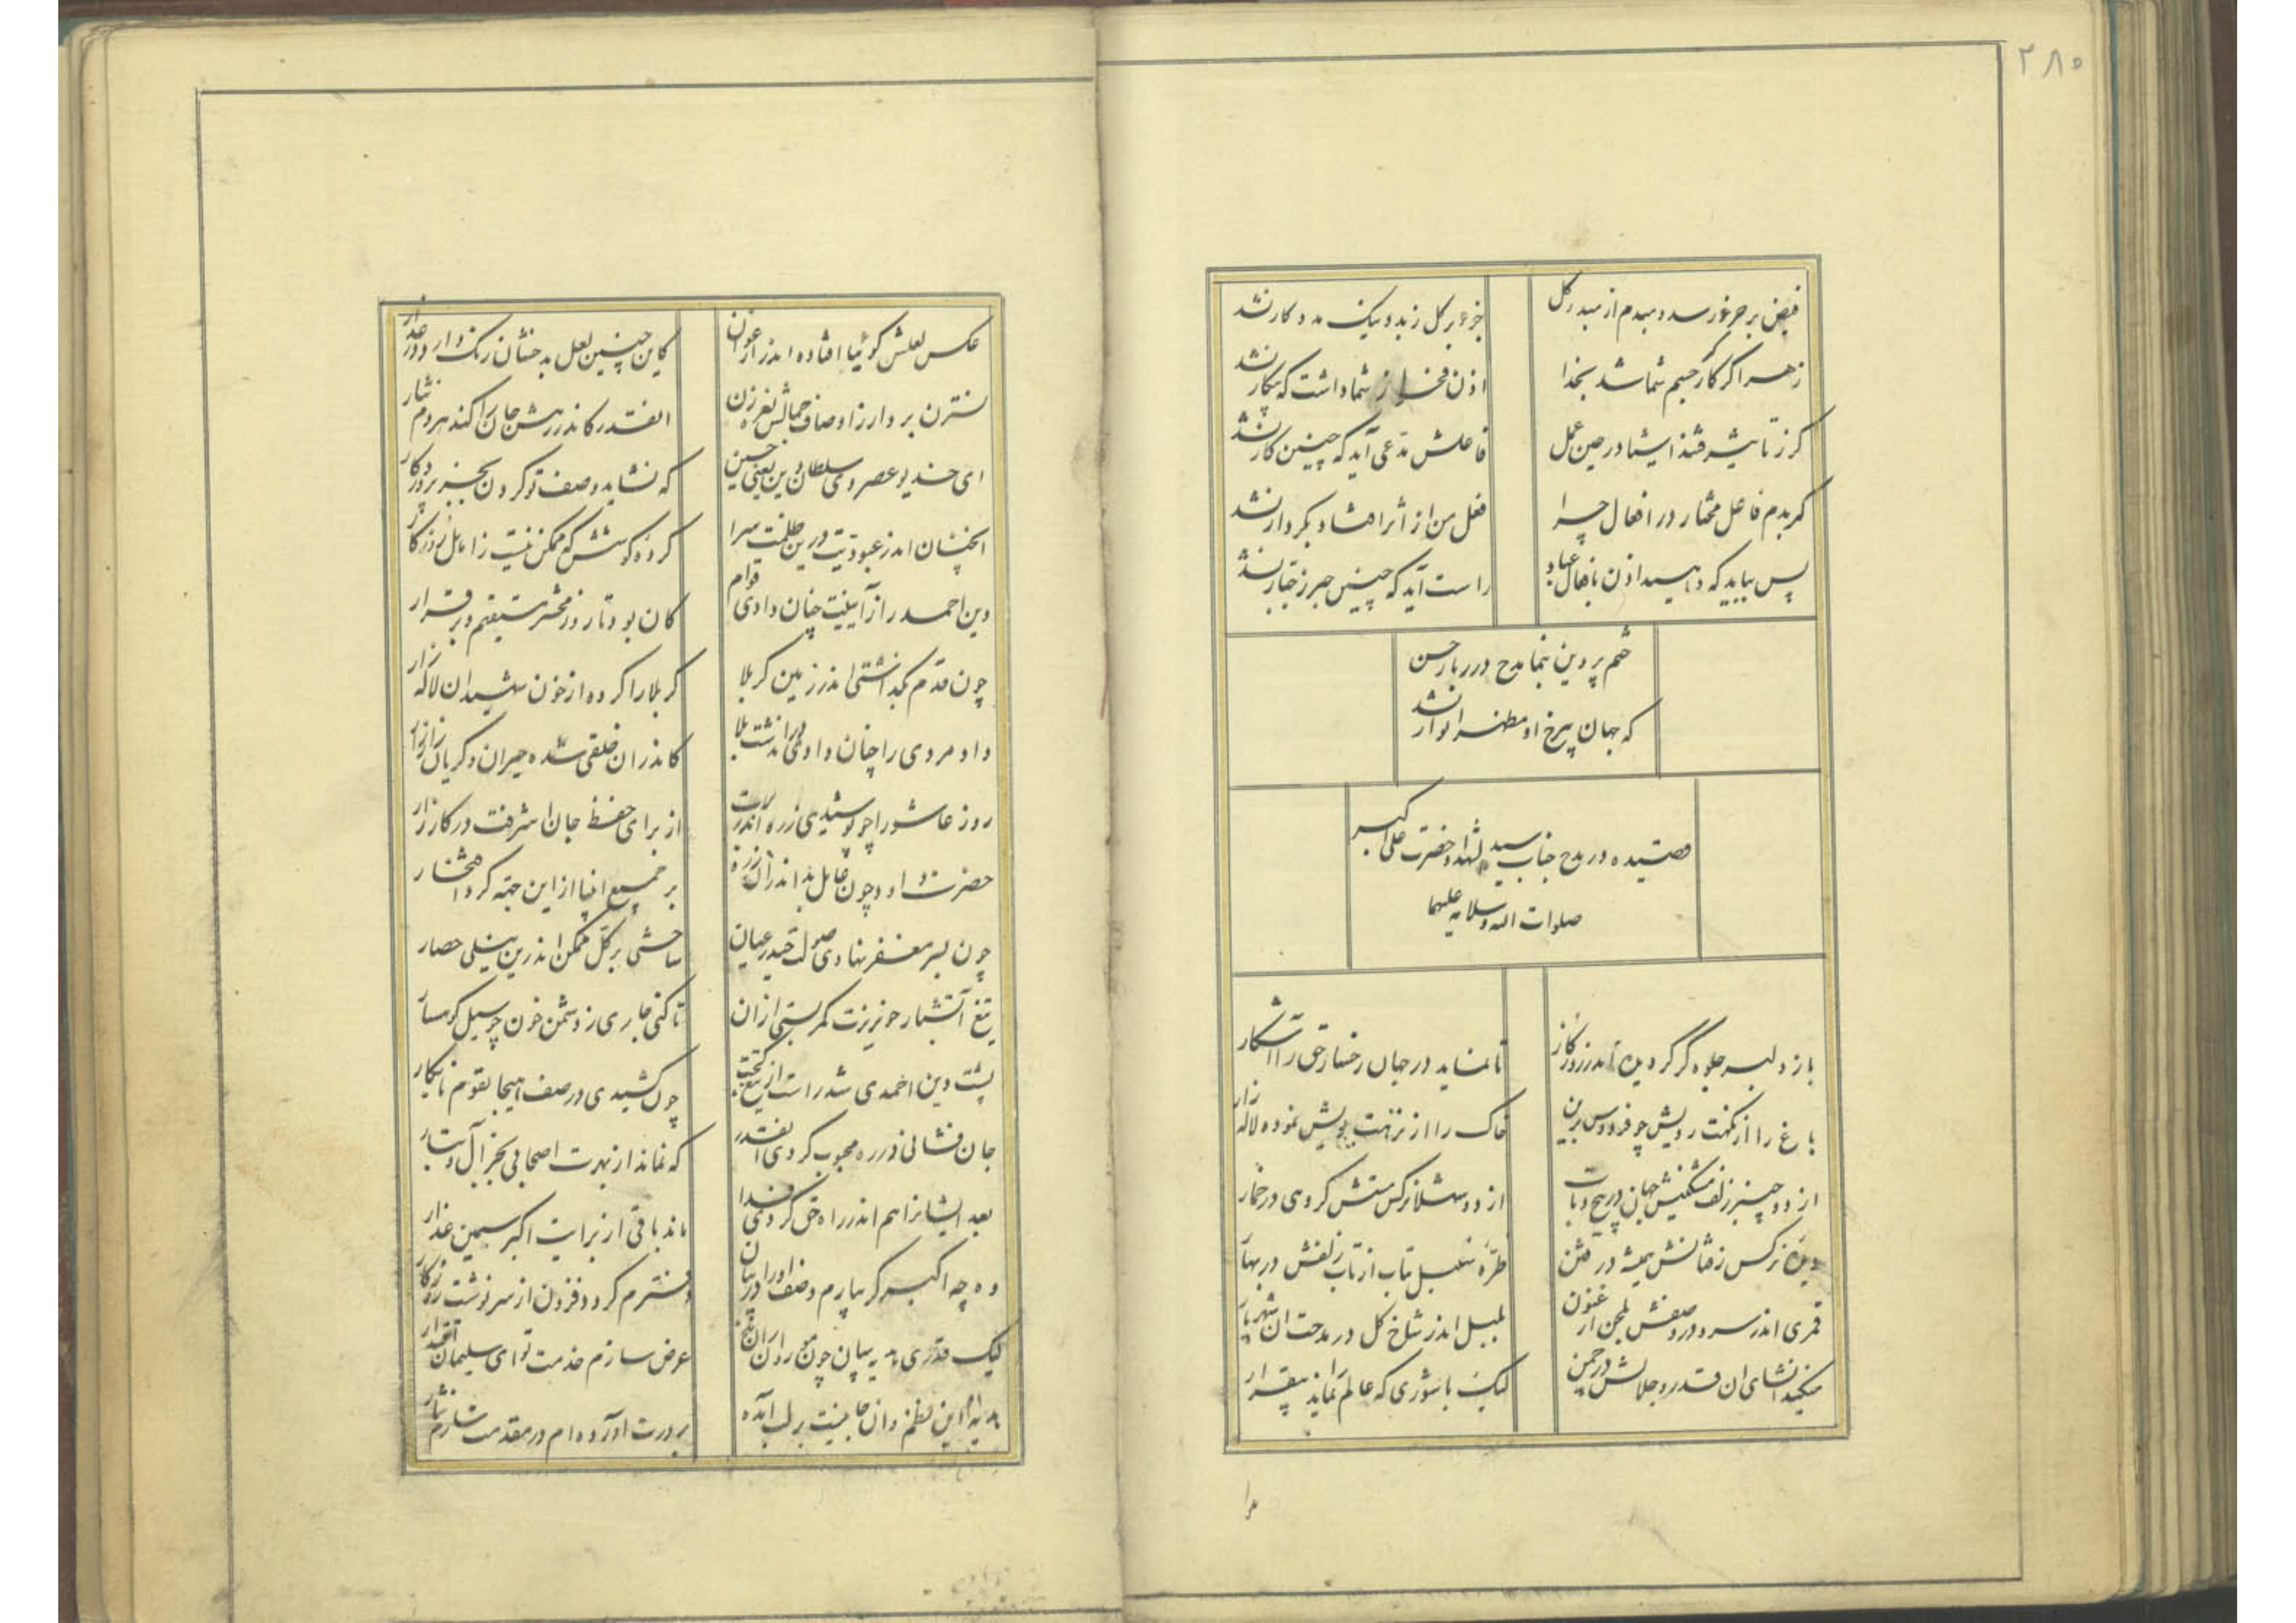 ۲۸۵
فیض بر جزء رسد و مبدم از مبدء کل
جزء بر کل ز بد و نیک مددکار نشد
زهر اگر کارگر جسم شما شد بخدا
اذن فخار از شما داشت که بیکار نشد
کر ز تاثیر فتند اشیا در حین عمل
فاعلش مدعی آید که چنین کار نشد
کر بدم فاعل مختار در افعال چرا
فعل من از اثر افتاد و بکردار نشد
پس بباید که دهید اذن بافعال عباد
راست آید که چنین جبر ز جبار نشد
ختم پروین بنما مدح در بار حسن
که جهان بیرخ او مطهر انوار نشد
قصیده در مدح جناب سید الشهداء و حضرت علی اکبر
صلوات الله و سلامه علیهما
باز دلبر جلوه گر گردیده اندر روزکار
تا نماید در جهان رخسار حق را آشکار
باغ را از نکهت رویش چو فردوس برین
خاک را از نزهت بویش نموده لاله زار
از دو چنبر زلف مشکینش جهان در پیچ و تاب
از دو شهلا نرکس مستش کروهی در خمار
دیده نرکس ز فتانش همیشه در فتن
طره سنبل بتاب از تاب زلفش در بهار
قمری اندر سرو در وصفش بلحن ارغنون
بلبل اندر شاخ کل در مدحت ان شهریار
میکند انشای ان قدر و جلالش در چمن
لیک با شوری که عالم را نماید بیقرار
عکس لعلش گوئیا افتاده اندر ارغوان
کاین چنین لعل بدخشان رنک دارد در عذار
نسترن بر دار ز اوصاف جمالش نغمه زن
انقدر کاندر رهش جان را کند هر دم نثار
ای خدیو عصر وی سلطان دین یعنی حسین
که نشاید وصف تو کردن بجز پروردکار
انچنان اندر عبودیت درین ظلمت سرا
کرده کوشش که ممکن نیست ز اهل روزکار
دین احمد را ز آیینت چنان دادی قوام
کان بود تا روز محشر مستقیم و برقرار
چون قدم بگذاشتی اندر زمین کربلا
کربلا را کرده از خون شهیدان لاله زار
داد مردی را چنان دادی در اندشت بلا
کاندر ان خلقی شده حیران و گریان زار زار
روز عاشورا چو پوشیدی زره اندر برت
از برای حفظ جان اشرفت در کارزار
حضرت داود چون عامل بد اندر ان زره
بر جمیع انبیا از این جهته کرد افتخار
چون بسر مغفر نهادی صولت حیدر عیان
ساختی بر کل ممکن اندرین نیلی حصار
تیغ آتشبار خونریزت کمر بستی از ان
تا کنی جاری ز دشمن خون چو سیل کوهسار
پشت دین احمدی شد راست از تیغ کجت
چون کشیدی در صف هیجا بقوم نابکار
جان فشانی در ره محبوب کردی انقدر
که نماند از بهرت اصحابی بجز آل و تبار
بعد ایشانرا هم اندر راه حق کردی فدا
ماند باقی از برایت اکبر سیمین عذار
وه چه اکبر گر بیارم وصف او را در بیان
دفترم کردد فزون از سرنوشت روزکار
لیک قدری هدیه بیان چون مور ران ملخ
عرض سازم خدمت تو ای سلیمان اقتدار
هدیه ام این نظم و ان جانیست بر لب آمده
بر درت آورده ام در مقدمت سازم نثار